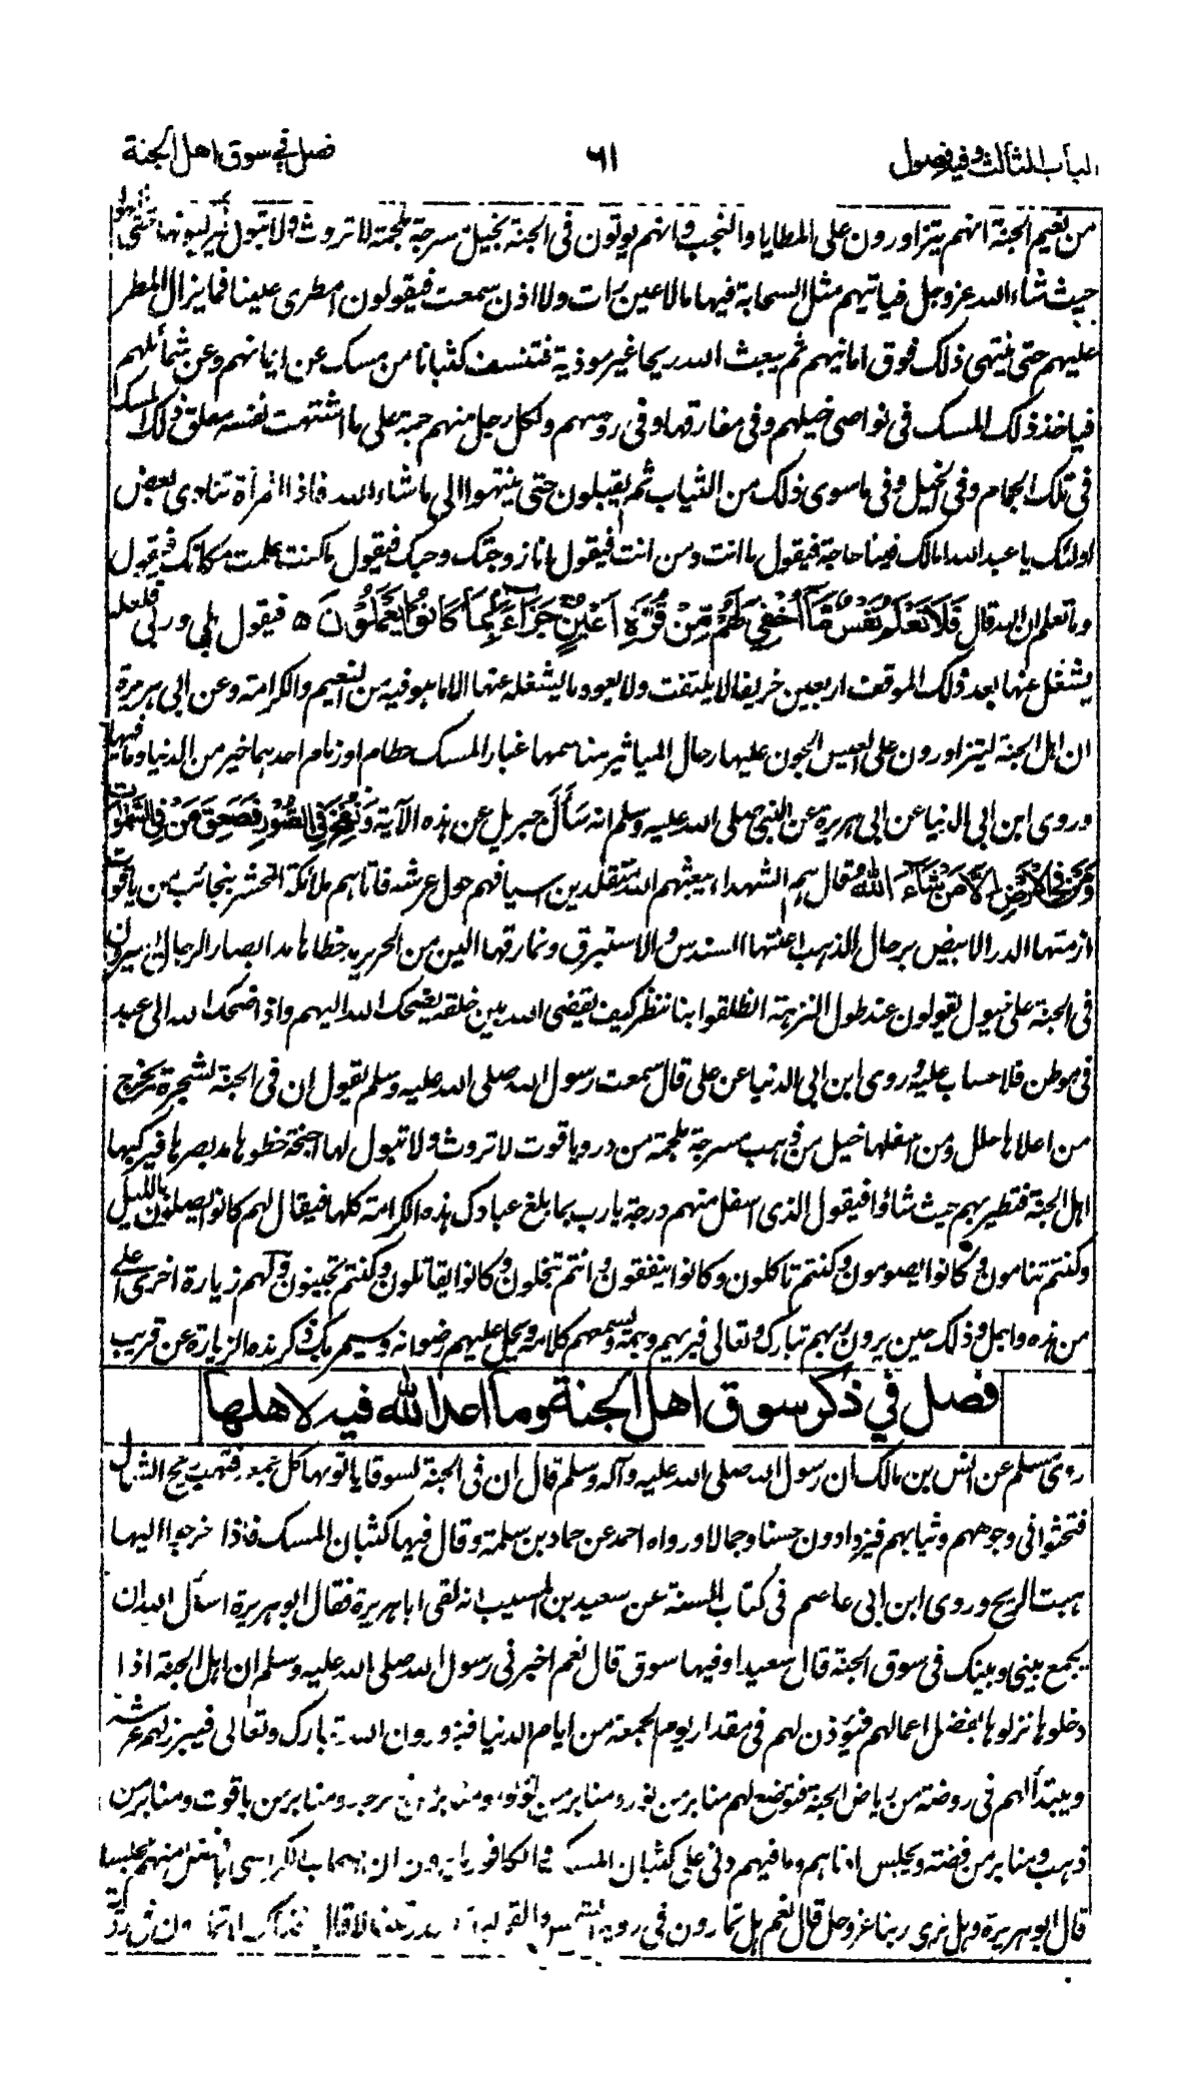 الباب الثالث وفيه فصول
٦١
فصل في سوق اهل الجنة
من نعيم الجنة انهم يتزاورون على المطايا والنجب وانهم يوتون فى الجنة بخيل مسرجة ملجمة لا تروث ولا تبول فيركبونها حتى ينتهوا
حيث شاء الله عزوجل فياتيهم مثل السحابة فيها مالا عين رات ولا اذن سمعت فيقولون امطرى علينا فما يزال المطر
عليهم حتى ينتهى ذلك فوق امانيهم ثم يبعث الله ريحا غير موذية فتنسف كثبانا من مسك عن ايمانهم وعن شمائلهم
فياخذ ذلك المسك فى نواصى خيلهم وفى مفارقها وفى روسهم ولكل رجل منهم جمة على ما اشتهت نفسه معلق ذلك المسك
فى تلك الجمام وفى الخيل وفى ما سوى ذلك من الثياب ثم يقبلون حتى ينتهوا الى ما شاء الله فاذا امرأة تنادى بعض
اولئك يا عبد الله امالك فينا حاجة فيقول ما انت ومن انت فيقول انا زوجتك وحبك فيقول ما كنت علمت مكانك فتقول
وما تعلم ان الله قال فَلَا تَعْلَمُ نَفْسٌ مَّا أُخْفِيَ لَهُم مِّنْ قُرَّةِ اَعْيُنٍ جَزَاءً بِمَا كَانُوْا يَعْمَلُوْنَ ه فيقول بلى وربى فلعله
يشغل عنها بعد ذلك الموقف اربعين خريفا لا يلتفت ولا يعود ما يشغله عنها الا ما هو فيه من النعيم والكرامة وعن ابى هريرة
ان اهل الجنة ليتزاورون على العيس الجون عليها رحال الميا ثير مناسمها غبار المسك حطام او زمام احدهما خير من الدنيا وما فيها
وروى ابن ابى الدنيا عن ابى هريرة عن النبى صلى الله عليه وسلم انه سَأَلَ جبريل عن هذه الآية وَنُفِخَ فِي الصُّوْرِ فَصَعِقَ مَنْ فِي السَّمٰوَاتِ
وَمَنْ فِي الْاَرْضِ اِلَّا مَنْ شَاءَ اللّٰهُ قال هم الشهداء يبعثهم الله متقلدين اسيافهم حول عرشه فاتاهم ملائكة المحشر بنجائب من ياقوت
ازمتها الدر الابيض برحال الذهب اعنتها السندس والاستبرق ونمارقها الين من الحرير مد خطاها مد ابصار الرجال يسيرون
فى الجنة على خيول يقولون عند طول النزهة انطلقوا بنا ننظر كيف يقضى الله بين خلقه يضحك الله اليهم واذا ضحك الله الى عبد
فى موطن فلا حساب عليه وروى ابن ابى الدنيا عن على قال سمعت رسول الله صلى الله عليه وسلم يقول ان فى الجنة لشجرة يخرج
من اعلاها حلل ومن اسفلها خيل من ذهب مسرجة ملجمة من در وياقوت لا تروث ولا تبول لها اجنحة خطوها مد بصرها فيركبها
اهل الجنة فتطير بهم حيث شاؤا فيقول الذى اسفل منهم درجة يا رب بما بلغ عبادك هذه الكرامة كلها فيقال لهم كانوا يصلون بالليل
وكنتم تنامون وكانوا يصومون وكنتم تاكلون وكانوا ينفقون وانتم تبخلون وكانوا يقاتلون وكنتم تجبنون ولهم زيارة اخرى اعلى
من هذه واجل وذلك حين يرون ربهم تبارك وتعالى فيريهم وجهه ويسمعهم كلامه ويحل عليهم رضوانه وسيمر بك ذكر هذه الزيارة عن قريب
فصل في ذكر سوق اهل الجنة وما اعد الله فيه لاهلها
روى مسلم عن انس بن مالك ان رسول الله صلى الله عليه وآله وسلم قال ان فى الجنة لسوقا ياتونها كل جمعة فتهب ريح الشمال
فتحثوا فى وجوههم وثيابهم فيزدادون حسنا وجمالا ورواه احمد عن حماد بن سلمة وقال فيها كثبان المسك فاذا خرجوا اليها
هبت الريح وروى ابن ابى عاصم فى كتاب السنة عن سعيد بن المسيب انه لقى ابا هريرة فقال ابو هريرة اسأل الله ان
يجمع بينى وبينك فى سوق الجنة قال سعيد اوفيها سوق قال نعم اخبرنى رسول الله صلى الله عليه وسلم ان اهل الجنة اذا
دخلوها نزلوها بفضل اعمالهم فيؤذن لهم فى مقدار يوم الجمعة من ايام الدنيا فيزورون الله تبارك وتعالى فيبرز لهم عرشه
ويتبدأ لهم فى روضة من رياض الجنة فتوضع لهم منابر من نور ومنابر من لؤلؤ ومنابر من زبرجد ومنابر من ياقوت ومنابر من
ذهب ومنابر من فضة ويجلس ادناهم وما فيهم دنى على كثبان المسك والكافور ما يرون ان اصحاب الكراسى بافضل منهم مجلسا
قال ابو هريرة وهل نرى ربنا عزوجل قال نعم هل تمارون فى روية الشمس والقمر ليلة البدر قلنا لا قال فكذلك لا تمارون فى روية